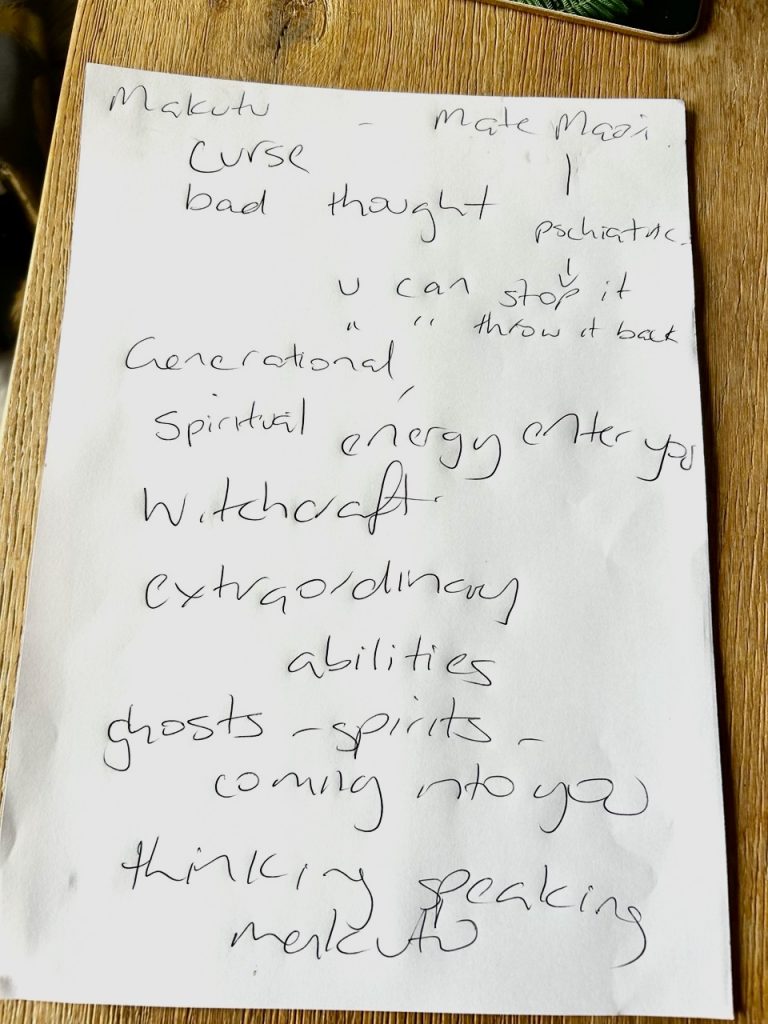 Makutu - Mate Maori
curse
bad thought
pschiatric
u can stop it
" " throw it back
Generational,
Spiritual energy enter you
Witchcraft
extraordinary
abilities
ghosts - spirits -
coming into you
thinking speaking
merkutu